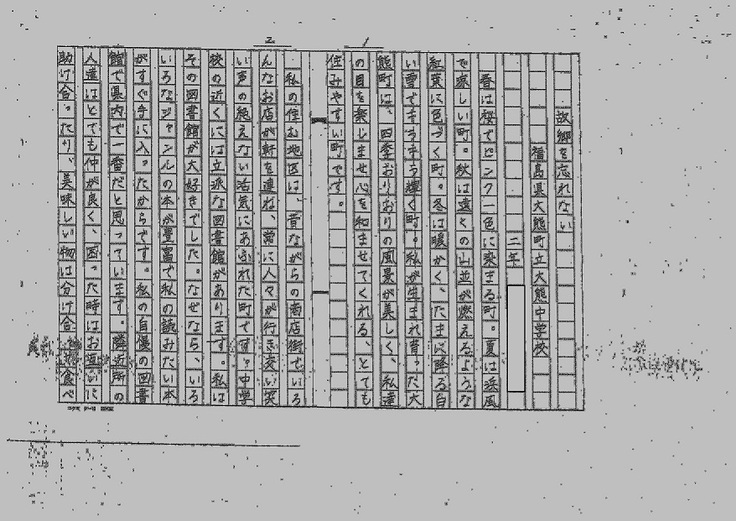 1
2
故郷を忘れない
福島県大熊町立大熊中学校
二年
春は桜でピンク一色に染まる町。夏は浜風
で涼しい町。秋は遠くの山並が燃えるような
紅葉に色づく町。冬は暖かく、たまに降る白
い雪でキラキラ輝く町。私が生まれ育った大
熊町は、四季おりおりの風景が美しく、私達
の目を楽しませ心を和ませてくれる、とても
住みやすい町です。
私の住む地区は、昔ながらの商店街でいろ
んなお店が軒を連ね、常に人々が行き交い笑
い声の絶えない活気にあふれた町です。中学
校の近くには立派な図書館があります。私は
その図書館が大好きでした。なぜなら、いろ
いろなジャンルの本が豊富で私の読みたい本
がすぐ手に入ったからです。私の自慢の図書
館で県内で一番だと思っています。隣近所の
人達はとても仲が良く、困った時はお互いに
助け合ったり、美味しい物は分け合って食べ